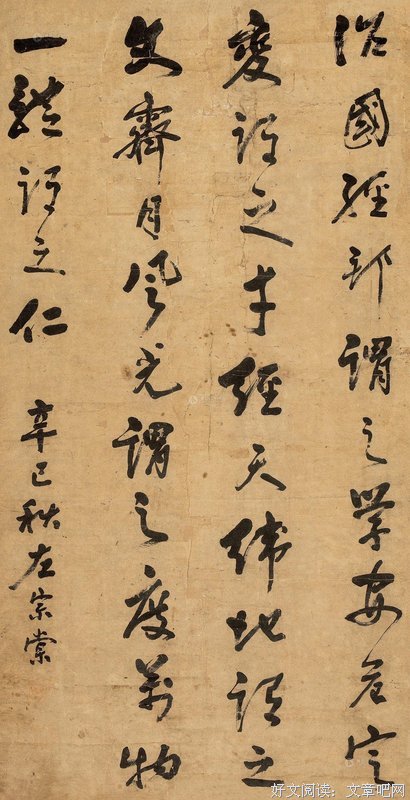 治國經邦謂之學安危定
變謂之才經天緯地謂之
文霽月風光謂之度萬物
一體謂之仁
辛巳秋左宗棠
好文阅读:文章吧网